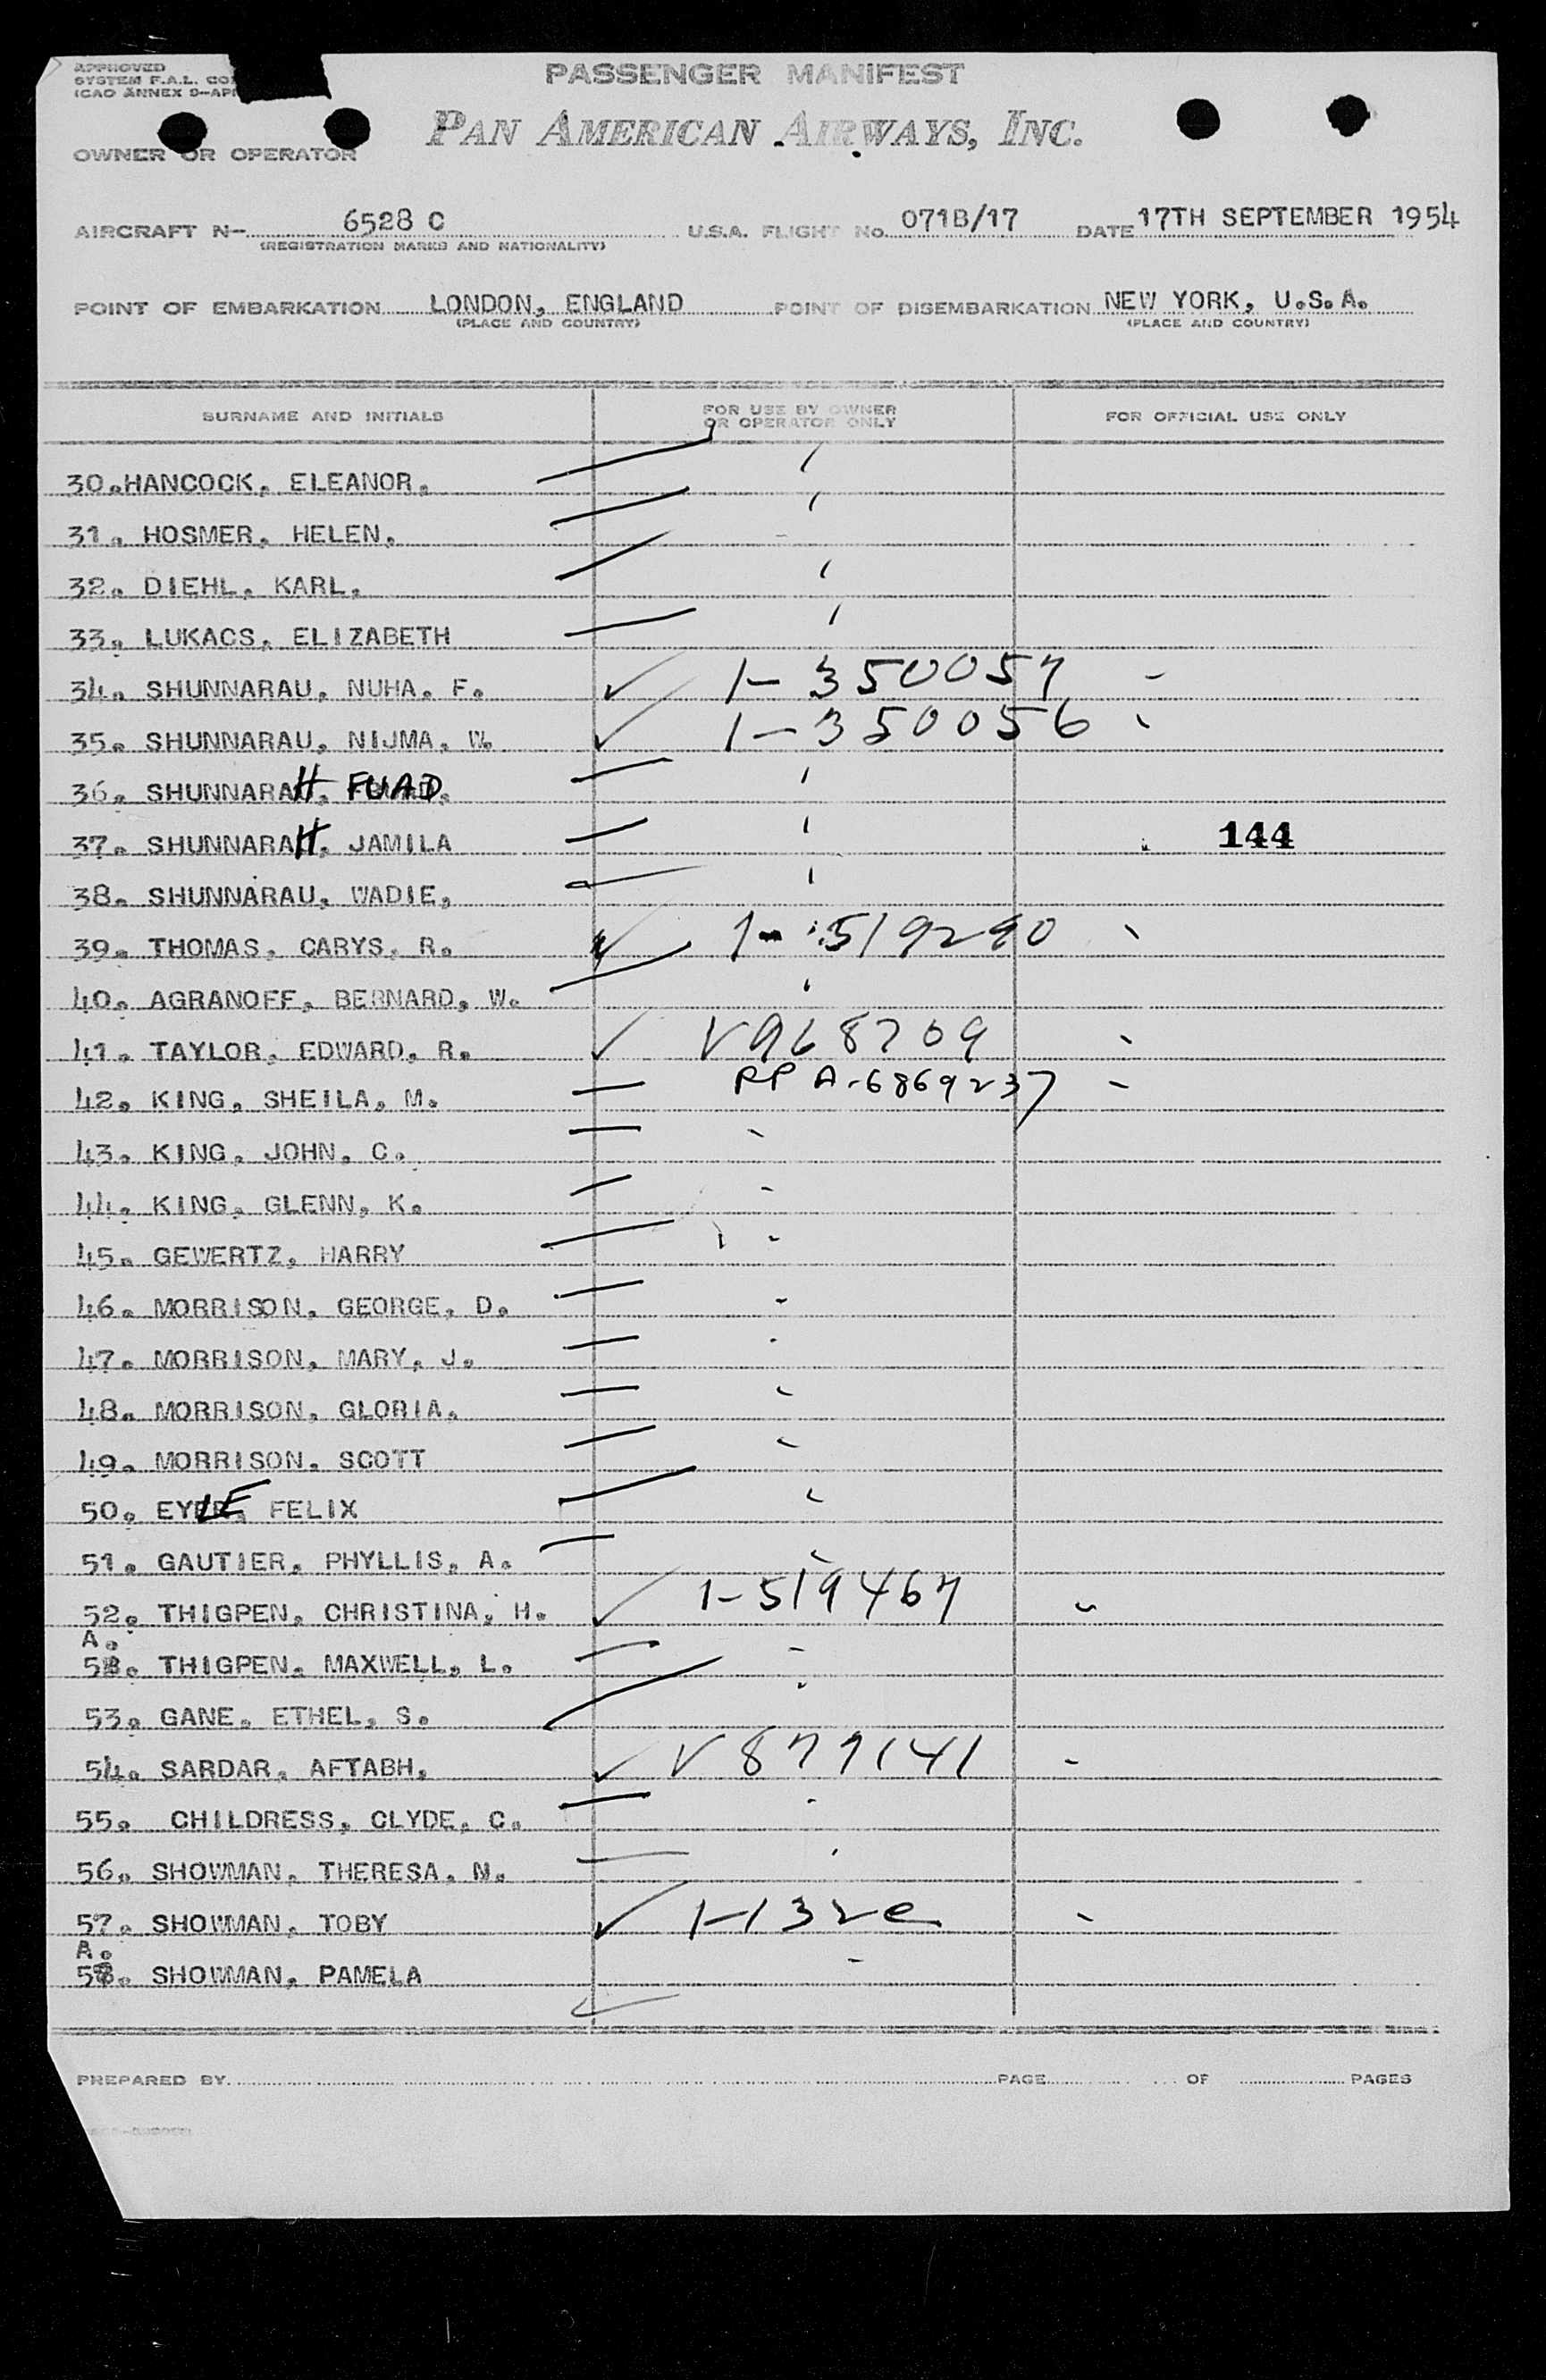 APPROVED
SYSTEM F.A.L.
ICAO ANNEX 9-
PASSENGER MANIFEST
PAN AMERICAN AIRWAYS, INC.
OWNER OR OPERATOR
AIRCRAFT N- 6528 C U.S.A. FLIGHT No. 071B/17 DATE 17TH SEPTEMBER 1954
(REGISTRATION MARKS AND NATIONALITY)
POINT OF EMBARKATION LONDON, ENGLAND POINT OF DISEMBARKATION NEW YORK, U.S.A.
(PLACE AND COUNTRY) (PLACE AND COUNTRY)
SURNAME AND INITIALS FOR USE BY OWNER OR OPERATOR ONLY FOR OFFICIAL USE ONLY
30. HANCOCK, ELEANOR.
31. HOSMER, HELEN.
32. DIEHL, KARL.
33. LUKACS, ELIZABETH
34. SHUNNARAU, NUHA. F. ✓ 1-350057
35. SHUNNARAU, NIJMA, W. ✓ 1-350056
36. SHUNNARAH, FUAD.
37. SHUNNARAH, JAMILA 144
38. SHUNNARAU, WADIE,
39. THOMAS, CARYS, R. ✓ 1-519290
40. AGRANOFF, BERNARD, W.
41. TAYLOR, EDWARD, R. ✓ V968709
42. KING, SHEILA, M. PP A-6869237
43. KING, JOHN, C.
44. KING, GLENN, K.
45. GEWERTZ, HARRY
46. MORRISON, GEORGE, D.
47. MORRISON, MARY, J.
48. MORRISON, GLORIA.
49. MORRISON, SCOTT
50. EYLE, FELIX
51. GAUTIER, PHYLLIS, A.
52. THIGPEN, CHRISTINA, H. ✓ 1-519467
A.
52. THIGPEN, MAXWELL, L.
53. GANE, ETHEL, S.
54. SARDAR, AFTABH. ✓ V877141
55. CHILDRESS, CLYDE, C.
56. SHOWMAN, THERESA, N.
57. SHOWMAN, TOBY ✓ 1-132e
A.
57. SHOWMAN, PAMELA
PREPARED BY PAGE OF PAGES